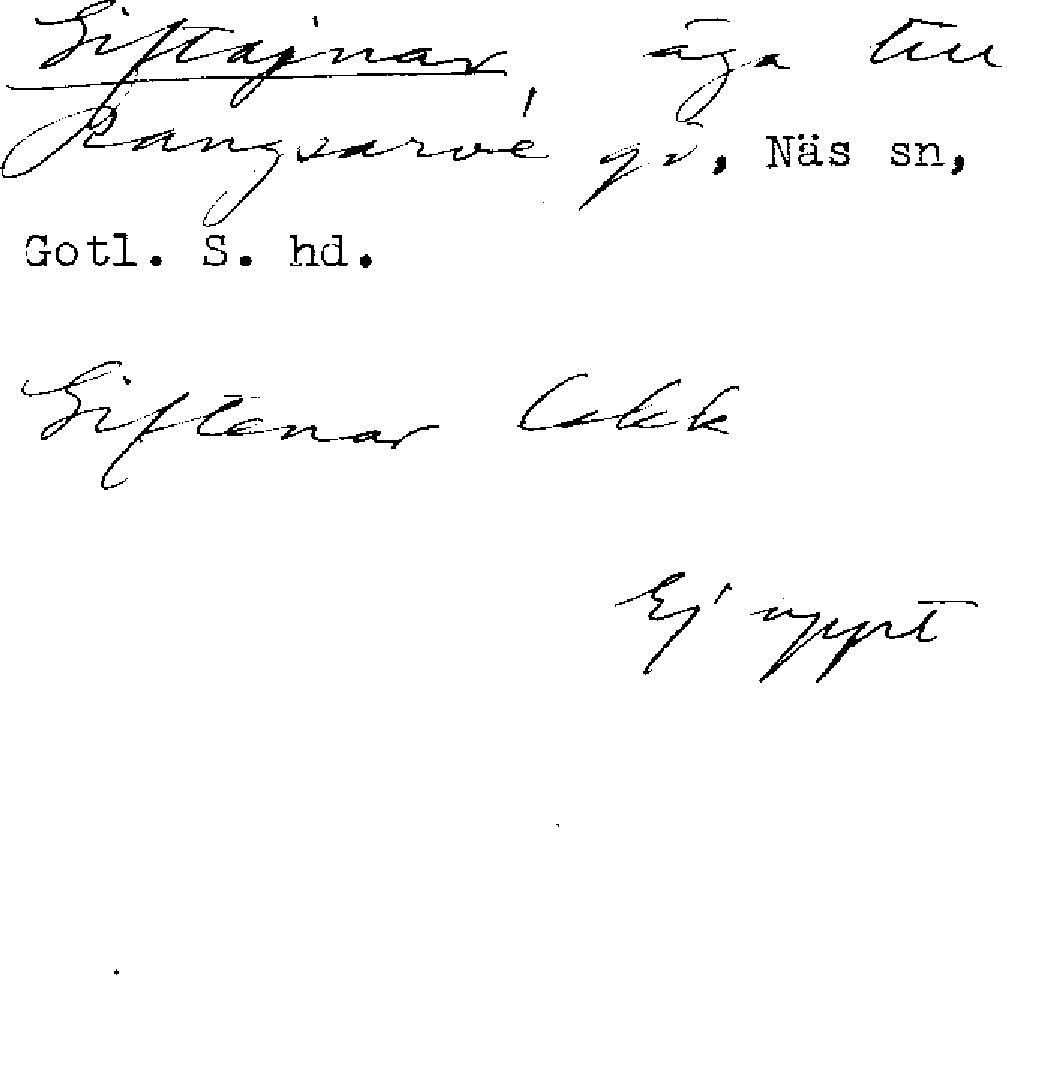 Siftajnar, äga till
Rangsarvé gd, Näs sn,
Gotl. S. hd.
Siftenar Lskk
Ej uppt